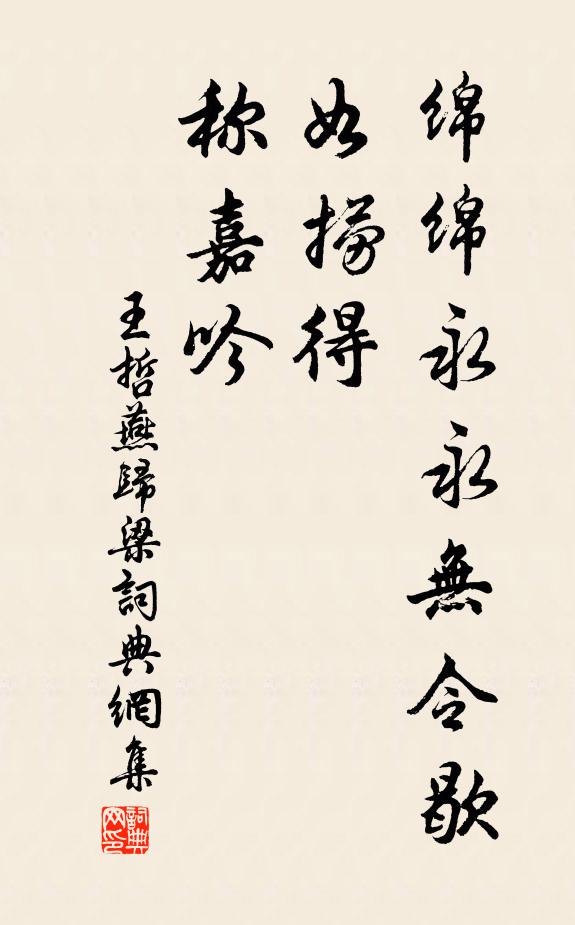 绵绵永永無令歇
如撈得
称嘉吟
王哲燕歸梁詞典網集
詞典網印